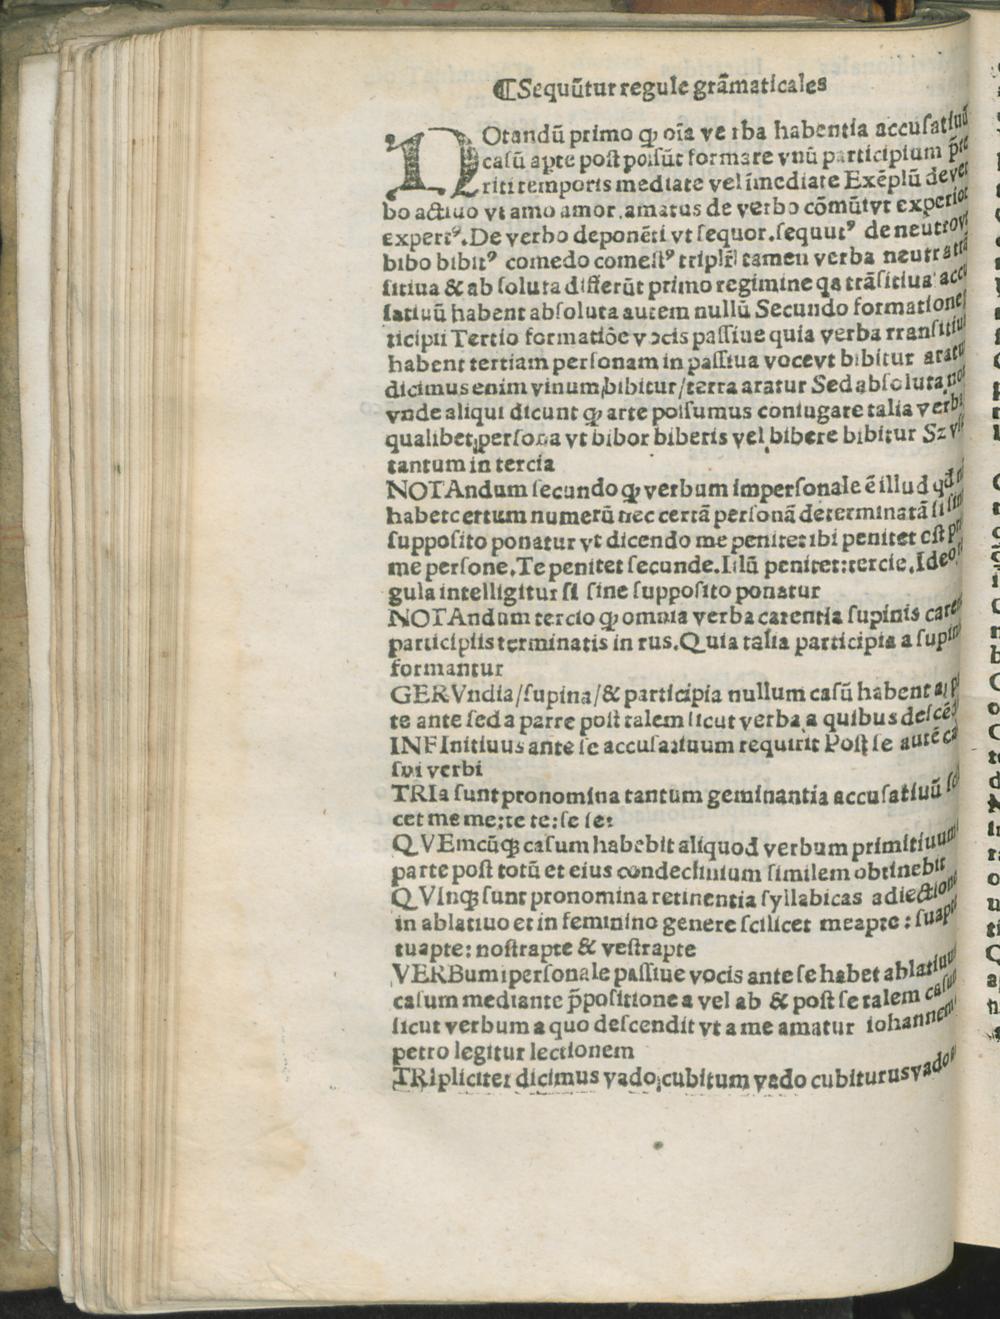 ⸿Sequūtur regule grāmaticales
NOtandū primo ꝙ oīa verba habentia accuſatiuū
caſū apte poſt poſſūt formare vnū participium p̄te
riti temporis mediate vel īmediate Exēplū de ver
bo actiuo vt amo amor.amatus de verbo cōmūi vt experior
expertꝰ.De verbo deponēti vt ſequor.ſequutꝰ de neutro vt
bibo bibitꝰ comedo comeſtꝰ triplr̄ tamen verba neutra trā
ſitiua & abſoluta differūt primo regimine qa trāſitiua accu
ſatiuū habent abſoluta autem nullū Secundo formatione
ticipii Tertio formatiōe vocis paſſiue quia verba rranſitiua
habent tertiam perſonam in paſſiua voce vt bibitur aratur
dicimus enim vinum bibitur/terra aratur Sed abſoluta non
vnde aliqui dicunt ꝙ arte poſſumus coniugare talia verba
qualibet perſona vt bibor biberis vel bibere bibitur Sz
tantum in tercia
NOTAndum ſecundo ꝙ verbum imperſonale ē illud qd
habet certum numerū nec certā perſonā determinatā ſi ſine
ſuppoſito ponatur vt dicendo me penitet ibi penitet eſt
me perſone.Te penitet ſecunde.Illū penitet:tercie.Ideo
gula intelligitur ſi ſine ſuppoſito ponatur
NOTAndum tercio ꝙ omnia verba carentia ſupinis carent
participiis terminatis in rus.Quia talia participia a ſupinis
formantur
GERVndia/ſupina/& participia nullum caſū habent a
te ante ſed a parre poſt talem ſicut verba a quibus deſcēd
INFInitiuus ante ſe accuſatiuum requirit Poſt ſe autē ca
ſui verbi
TRIa ſunt pronomina tantum geminantia accuſatiuū
cet me me:te te:ſe ſe:
QVEmcūqꝫ caſum habebit aliquod verbum primitiuum
parte poſt totū et eius condeclinium ſimilem obtinebit
QVInqꝫ ſunt pronomina retinentia ſyllabicas adiectione
in ablatiuo et in feminino genere ſcilicet meapte : ſuapte
tuapte: noſtrapte & veſtrapte
VERBum iperſonale paſſiue vocis ante ſe habet ablatiuum
caſum mediante p̄poſitione a vel ab & poſt ſe talem caſum
ſicut verbum a quo deſcendit vt a me amatur iohannem
petro legitur lectionem
TRIpliciter dicimus vado cubitum vado cubiturus vado